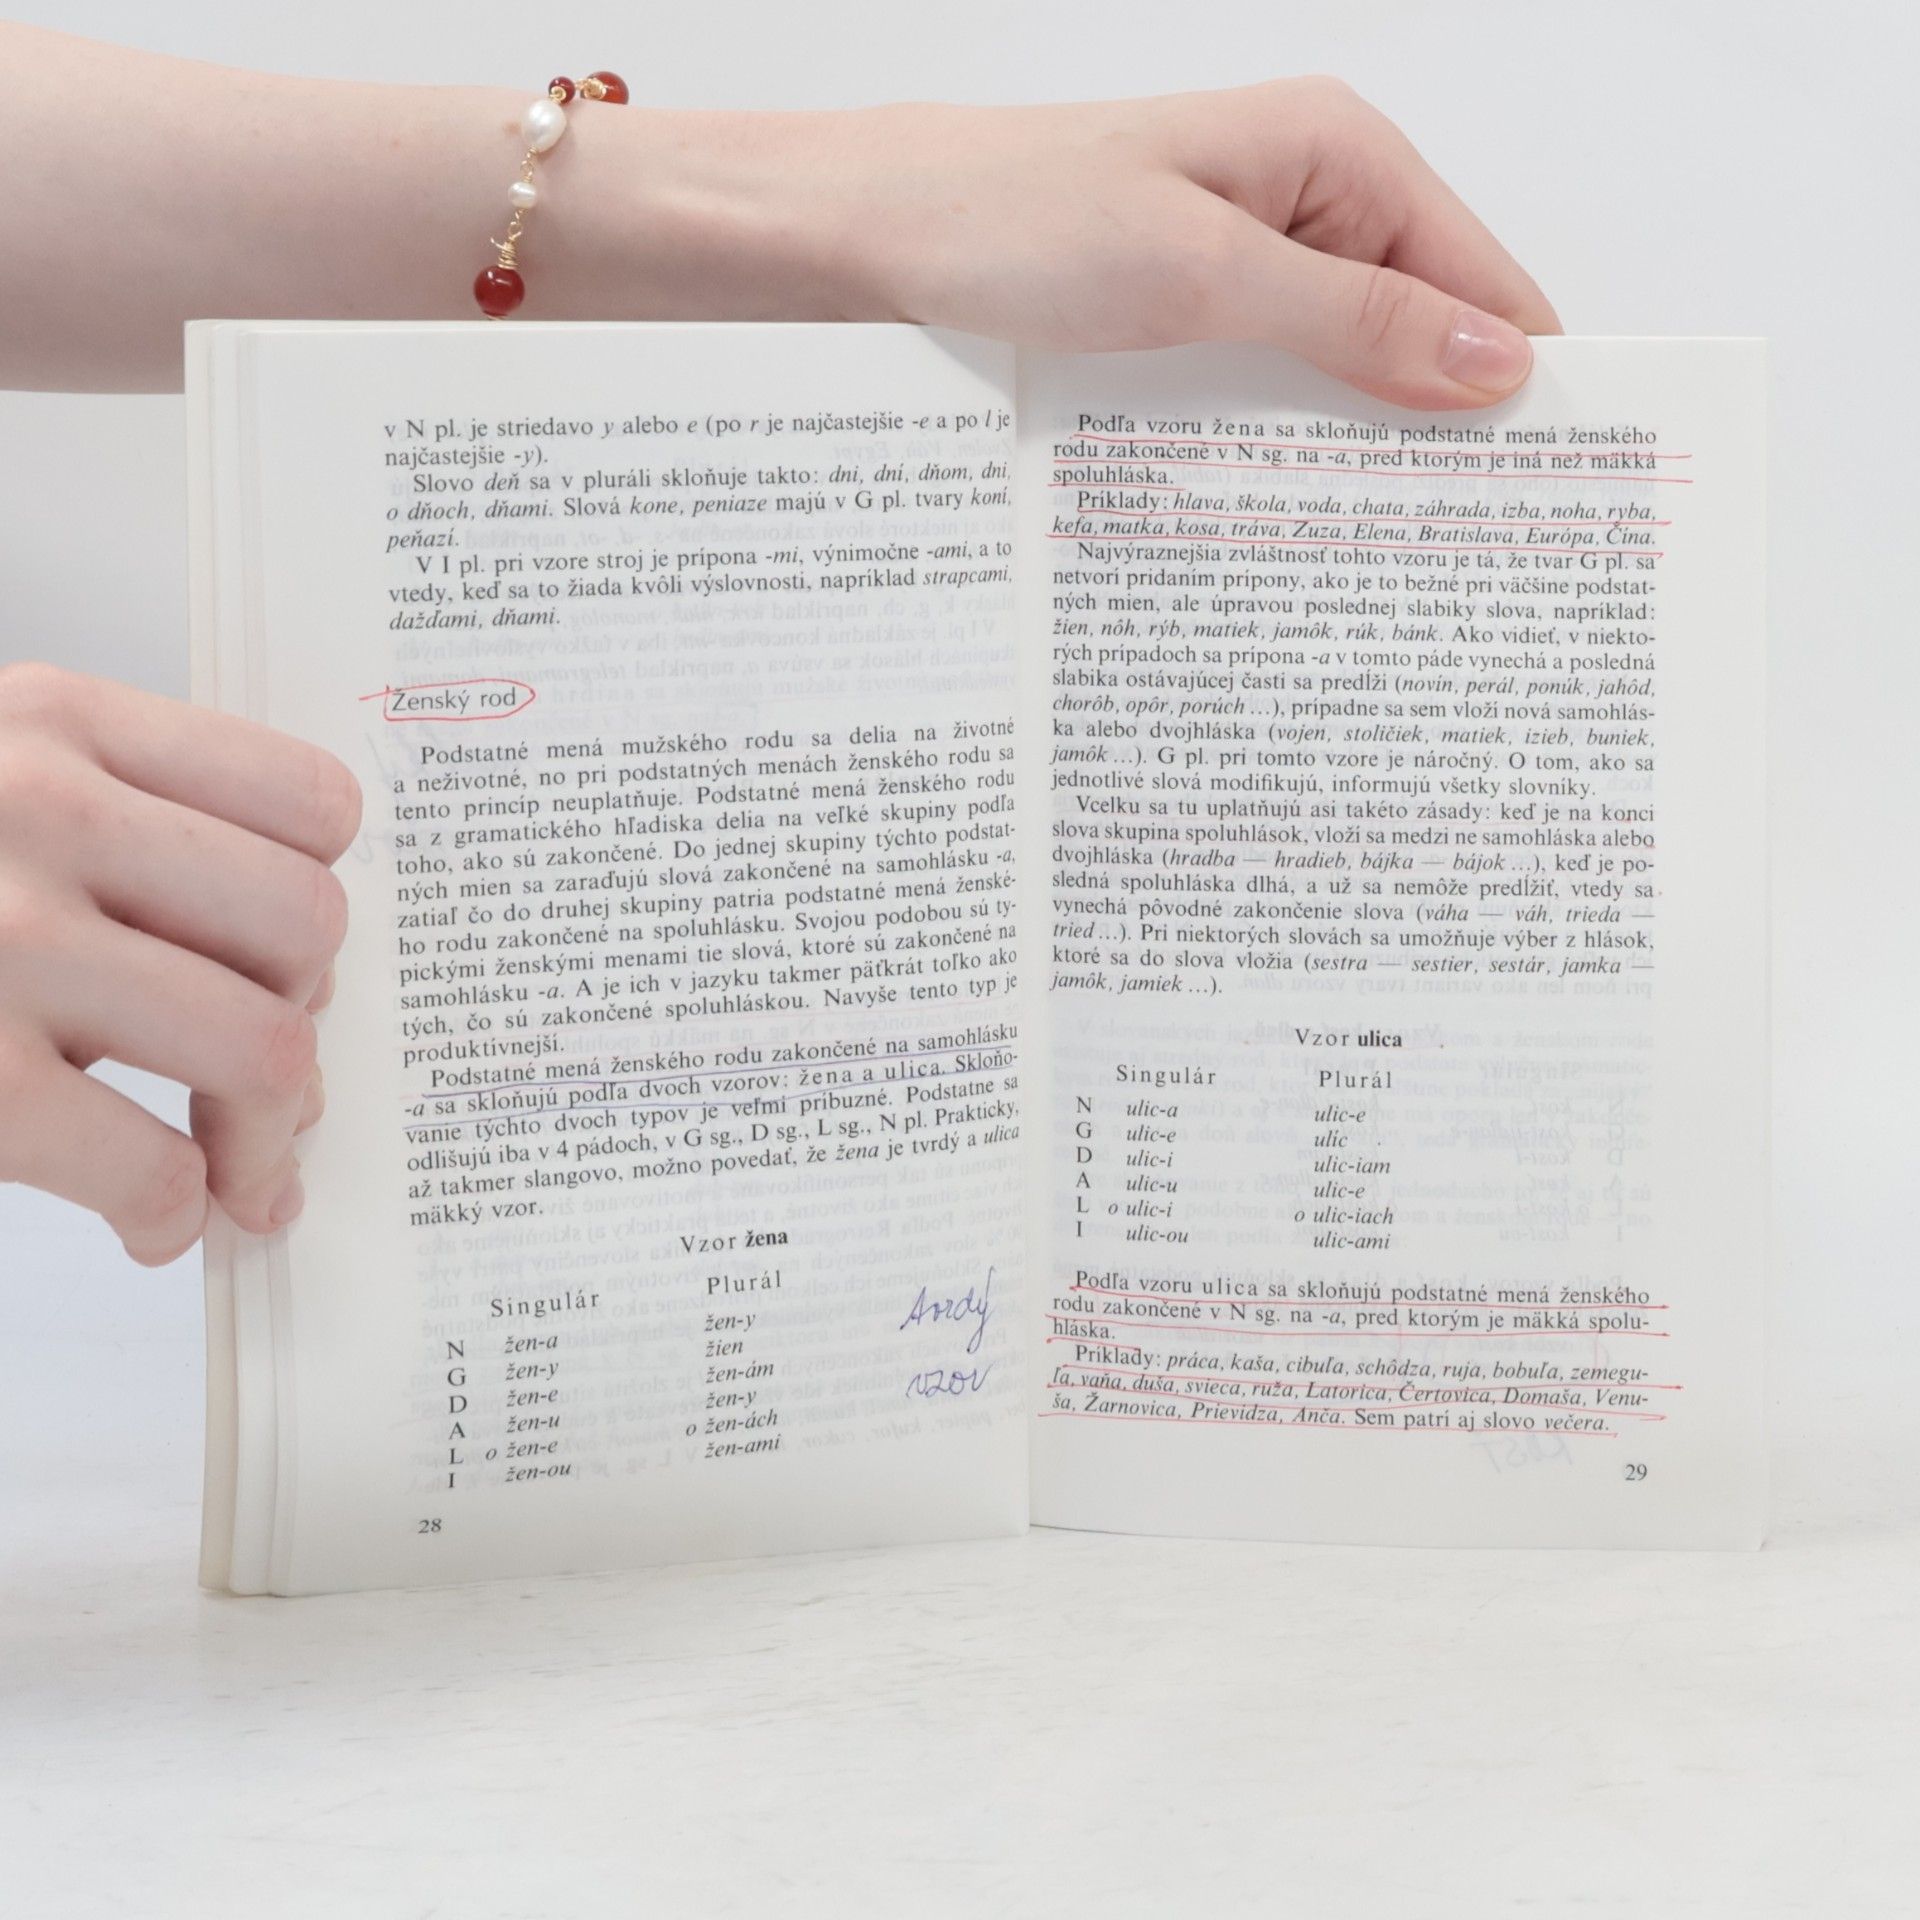 v N pl. je striedavo y alebo e (po r je najčastejšie -e a po l je
najčastejšie -y).
Slovo deň sa v pluráli skloňuje takto: dni, dní, dňom, dni,
o dňoch, dňami. Slová kone, peniaze majú v G pl. tvary koní,
peňazí.
V I pl. pri vzore stroj je prípona -mi, výnimočne -ami, a to
vtedy, keď sa to žiada kvôli výslovnosti, napríklad strapcami,
dažďami, dňami.
Ženský rod
Podstatné mená mužského rodu sa delia na životné
a neživotné, no pri podstatných menách ženského rodu sa
tento princíp neuplatňuje. Podstatné mená ženského rodu
sa z gramatického hľadiska delia na veľké skupiny podľa
toho, ako sú zakončené. Do jednej skupiny týchto podstat-
ných mien sa zaraďujú slová zakončené na samohlásku -a,
zatiaľ čo do druhej skupiny patria podstatné mená ženské-
ho rodu zakončené na spoluhlásku. Svojou podobou sú ty-
pickými ženskými menami tie slová, ktoré sú zakončené na
samohlásku -a. A je ich v jazyku takmer päťkrát toľko ako
tých, čo sú zakončené spoluhláskou. Navyše tento typ je
produktívnejší.
Podstatné mená ženského rodu zakončené na samohlásku
-a sa skloňujú podľa dvoch vzorov: žena a ulica. Skloňo-
vanie týchto dvoch typov je veľmi príbuzné. Podstatne sa
odlišujú iba v 4 pádoch, v G sg., D sg., L sg., N pl. Prakticky,
až takmer slangovo, možno povedať, že žena je tvrdý a ulica
mäkký vzor.
Vzor žena
Singulár Plurál
N žen-a žen-y
G žen-y žien
D žen-e žen-ám
A žen-u žen-y
L o žen-e o žen-ách
I žen-ou žen-ami
tvrdý
vzor
28
Podľa vzoru žena sa skloňujú podstatné mená ženského
rodu zakončené v N sg. na -a, pred ktorým je iná než mäkká
spoluhláska.
Príklady: hlava, škola, voda, chata, záhrada, izba, noha, ryba,
kefa, matka, kosa, tráva, Zuza, Elena, Bratislava, Európa, Čína.
Najvýraznejšia zvláštnosť tohto vzoru je tá, že tvar G pl. sa
netvorí pridaním prípony, ako je to bežné pri väčšine podstat-
ných mien, ale úpravou poslednej slabiky slova, napríklad:
žien, nôh, rýb, matiek, jamôk, rúk, bánk. Ako vidieť, v niekto-
rých prípadoch sa prípona -a v tomto páde vynechá a posledná
slabika ostávajúcej časti sa predĺži (novín, perál, ponúk, jahôd,
chorôb, opôr, porúch ...), prípadne sa sem vloží nová samohlás-
ka alebo dvojhláska (vojen, stoličiek, matiek, izieb, buniek,
jamôk ...). G pl. pri tomto vzore je náročný. O tom, ako sa
jednotlivé slová modifikujú, informujú všetky slovníky.
Vcelku sa tu uplatňujú asi takéto zásady: keď je na konci
slova skupina spoluhlások, vloží sa medzi ne samohláska alebo
dvojhláska (hradba — hradieb, bájka — bájok ...), keď je po-
sledná spoluhláska dlhá, a už sa nemôže predĺžiť, vtedy sa
vynechá pôvodné zakončenie slova (váha — váh, trieda —
tried ...). Pri niektorých slovách sa umožňuje výber z hlások,
ktoré sa do slova vložia (sestra — sestier, sestár, jamka —
jamôk, jamiek ...).
Vzor ulica
Singulár Plurál
N ulic-a ulic-e
G ulic-e ulíc
D ulic-i ulic-iam
A ulic-u ulic-e
L o ulic-i o ulic-iach
I ulic-ou ulic-ami
Podľa vzoru ulica sa skloňujú podstatné mená ženského
rodu zakončené v N sg. na -a, pred ktorým je mäkká spolu-
hláska.
Príklady: práca, kaša, cibuľa, schôdza, ruja, bobuľa, zemegu-
ľa, vaňa, duša, svieca, ruža, Latorica, Čertovica, Domaša, Venu-
ša, Žarnovica, Prievidza, Anča. Sem patrí aj slovo večera.
29